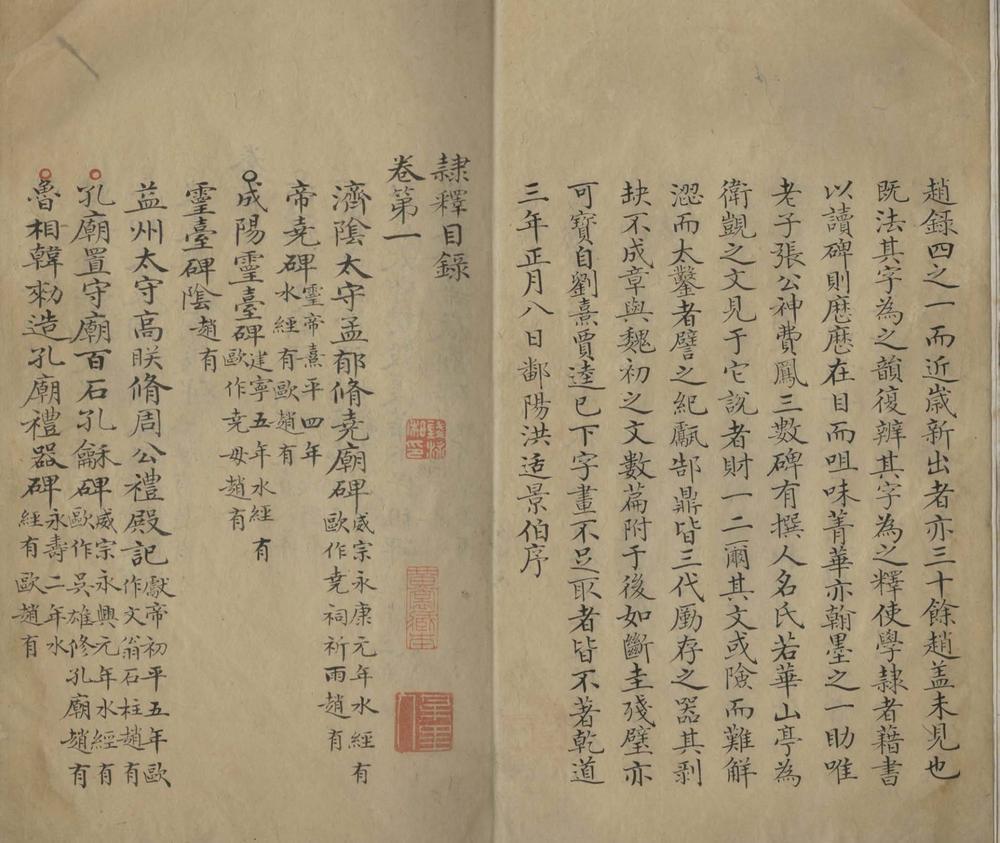 趙錄四之一而近歲新出者亦三十餘趙盖未見也
既法其字為之韻復辨其字為之釋使學隸者藉書
以讀碑則歴歴在目而咀味菁華亦翰墨之一助唯
老子張公神費鳳三數碑有撰人名氏若華山亭為
衛覬之文見于它說者財一二爾其文或險而難解
澀而太鑿者譬之紀甗郜鼎皆三代厪存之器其剥
缺不成章與魏初之文數篇附于後如斷圭殘璧亦
可寳自劉熹賈逵已下字畫不足取者皆不著乾道
三年正月八日鄱陽洪适景伯序
隷釋目錄
卷第一
濟陰太守孟郁脩堯廟碑 威宗永康元年水經有
歐作堯祠祈雨趙有
帝堯碑 靈帝熹平四年
水經有歐趙有
成陽靈臺碑 建寧五年水經有
歐作堯母趙有
靈臺碑陰 趙有
益州太守高眹脩周公禮殿記 獻帝初平五年歐
作文翁石柱趙有
孔廟置守廟百石孔龢碑 威宗永興元年水經有
歐作吳雄修孔廟趙有
魯相韓勑造孔廟禮器碑 永壽二年水
經有歐趙有